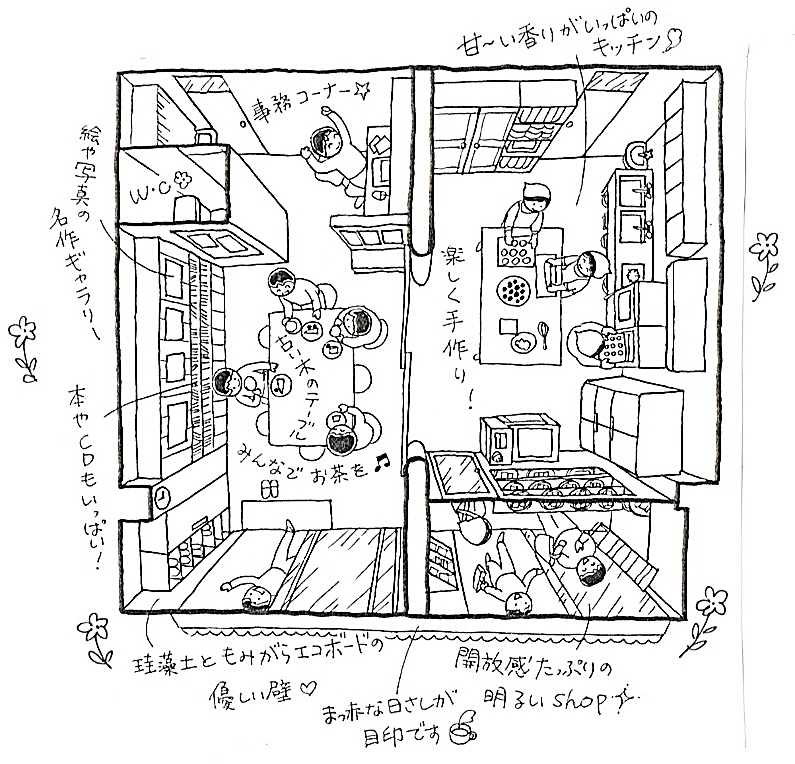 甘〜い香りがいっぱいの
キッチン
事務コーナー☆
絵や写真の
名作ギャラリー
W・C
楽しく手作り！
古い木のテーブル
みんなでお茶を♫
本やCDもいっぱい！
珪藻土ともみがらエコボードの
優しい壁♡
まっ赤な日さしが
目印です
開放感たっぷりの
明るいshop